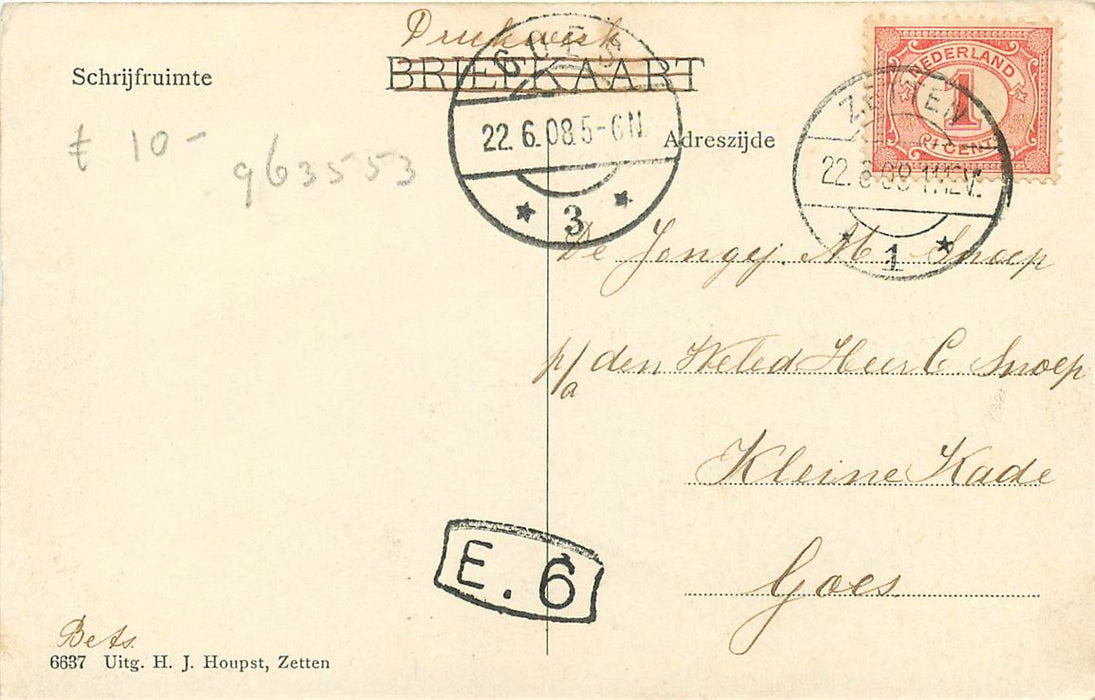 Drukwerk
BRIEFKAART
Schrijfruimte
Adreszijde
GOES
22.6.08.5-6N.
3
NEDERLAND
1
CENT
ZETTEN
22. 08 11-12V.
1
£ 10-
963553
De Jongej. M. Snoep
p/a den Weled Heer C. Snoep
Kleine Kade
Goes
E. 6
Bets.
6637 Uitg. H. J. Houpst, Zetten